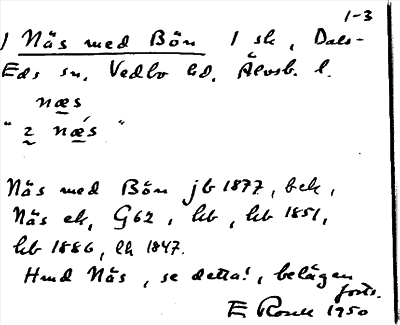 1-3
1 Näs med Bön 1 sk, Dals-
Eds sn. Vedbo hd. Älvsb. l.
næs
" 2 næ´s "
Näs med Bön jb 1877, bek,
Näs ek, G62, kb, kb 1851,
kb 1886, lh 1847.
Hmd Näs, se detta!, belägen
forts.
E Rosell 1950